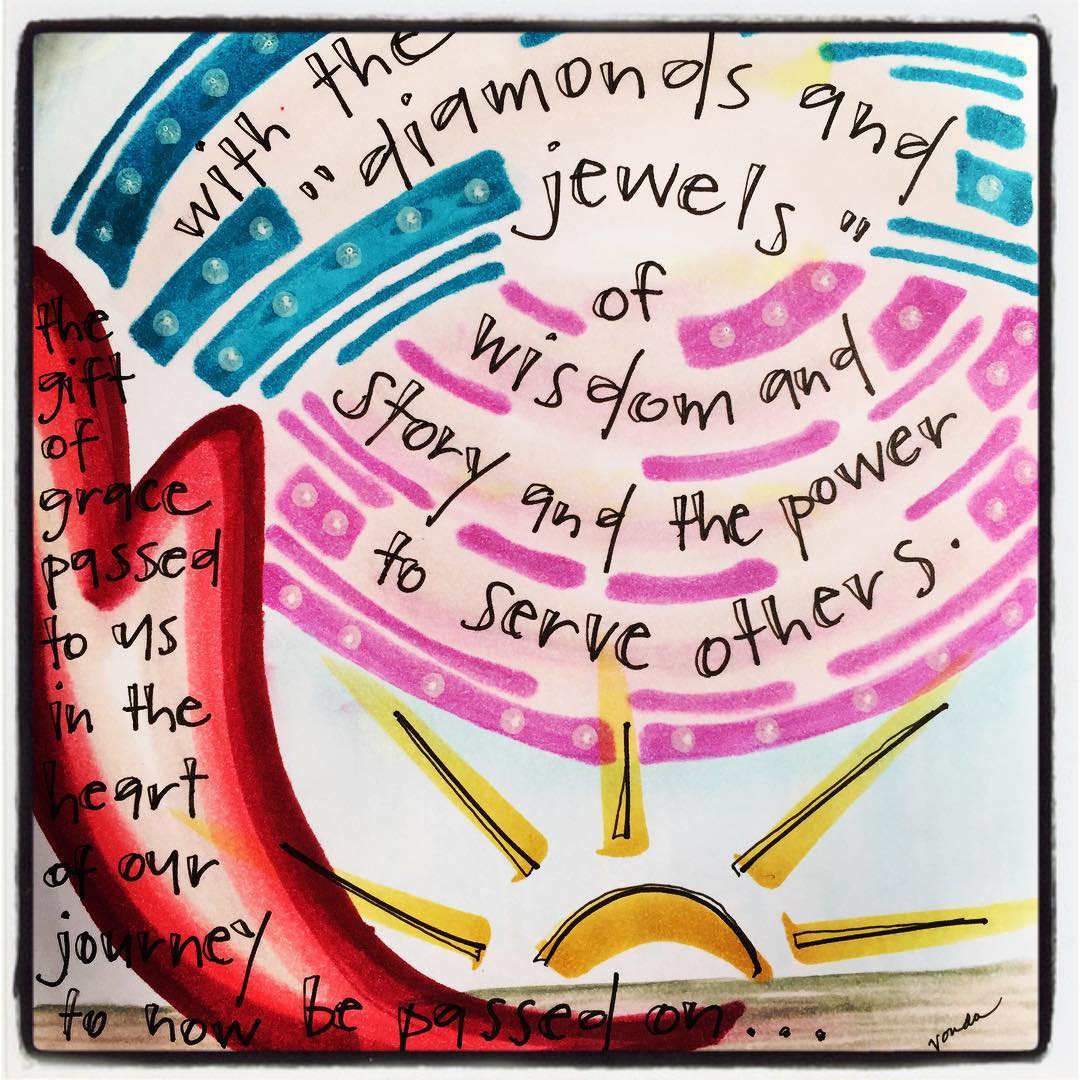 with the
"diamonds and
jewels"
of
wisdom and
story and the power
to serve others.
the
gift
of
grace
passed
to us
in the
heart
of our
journey
to now be passed on...
vonda